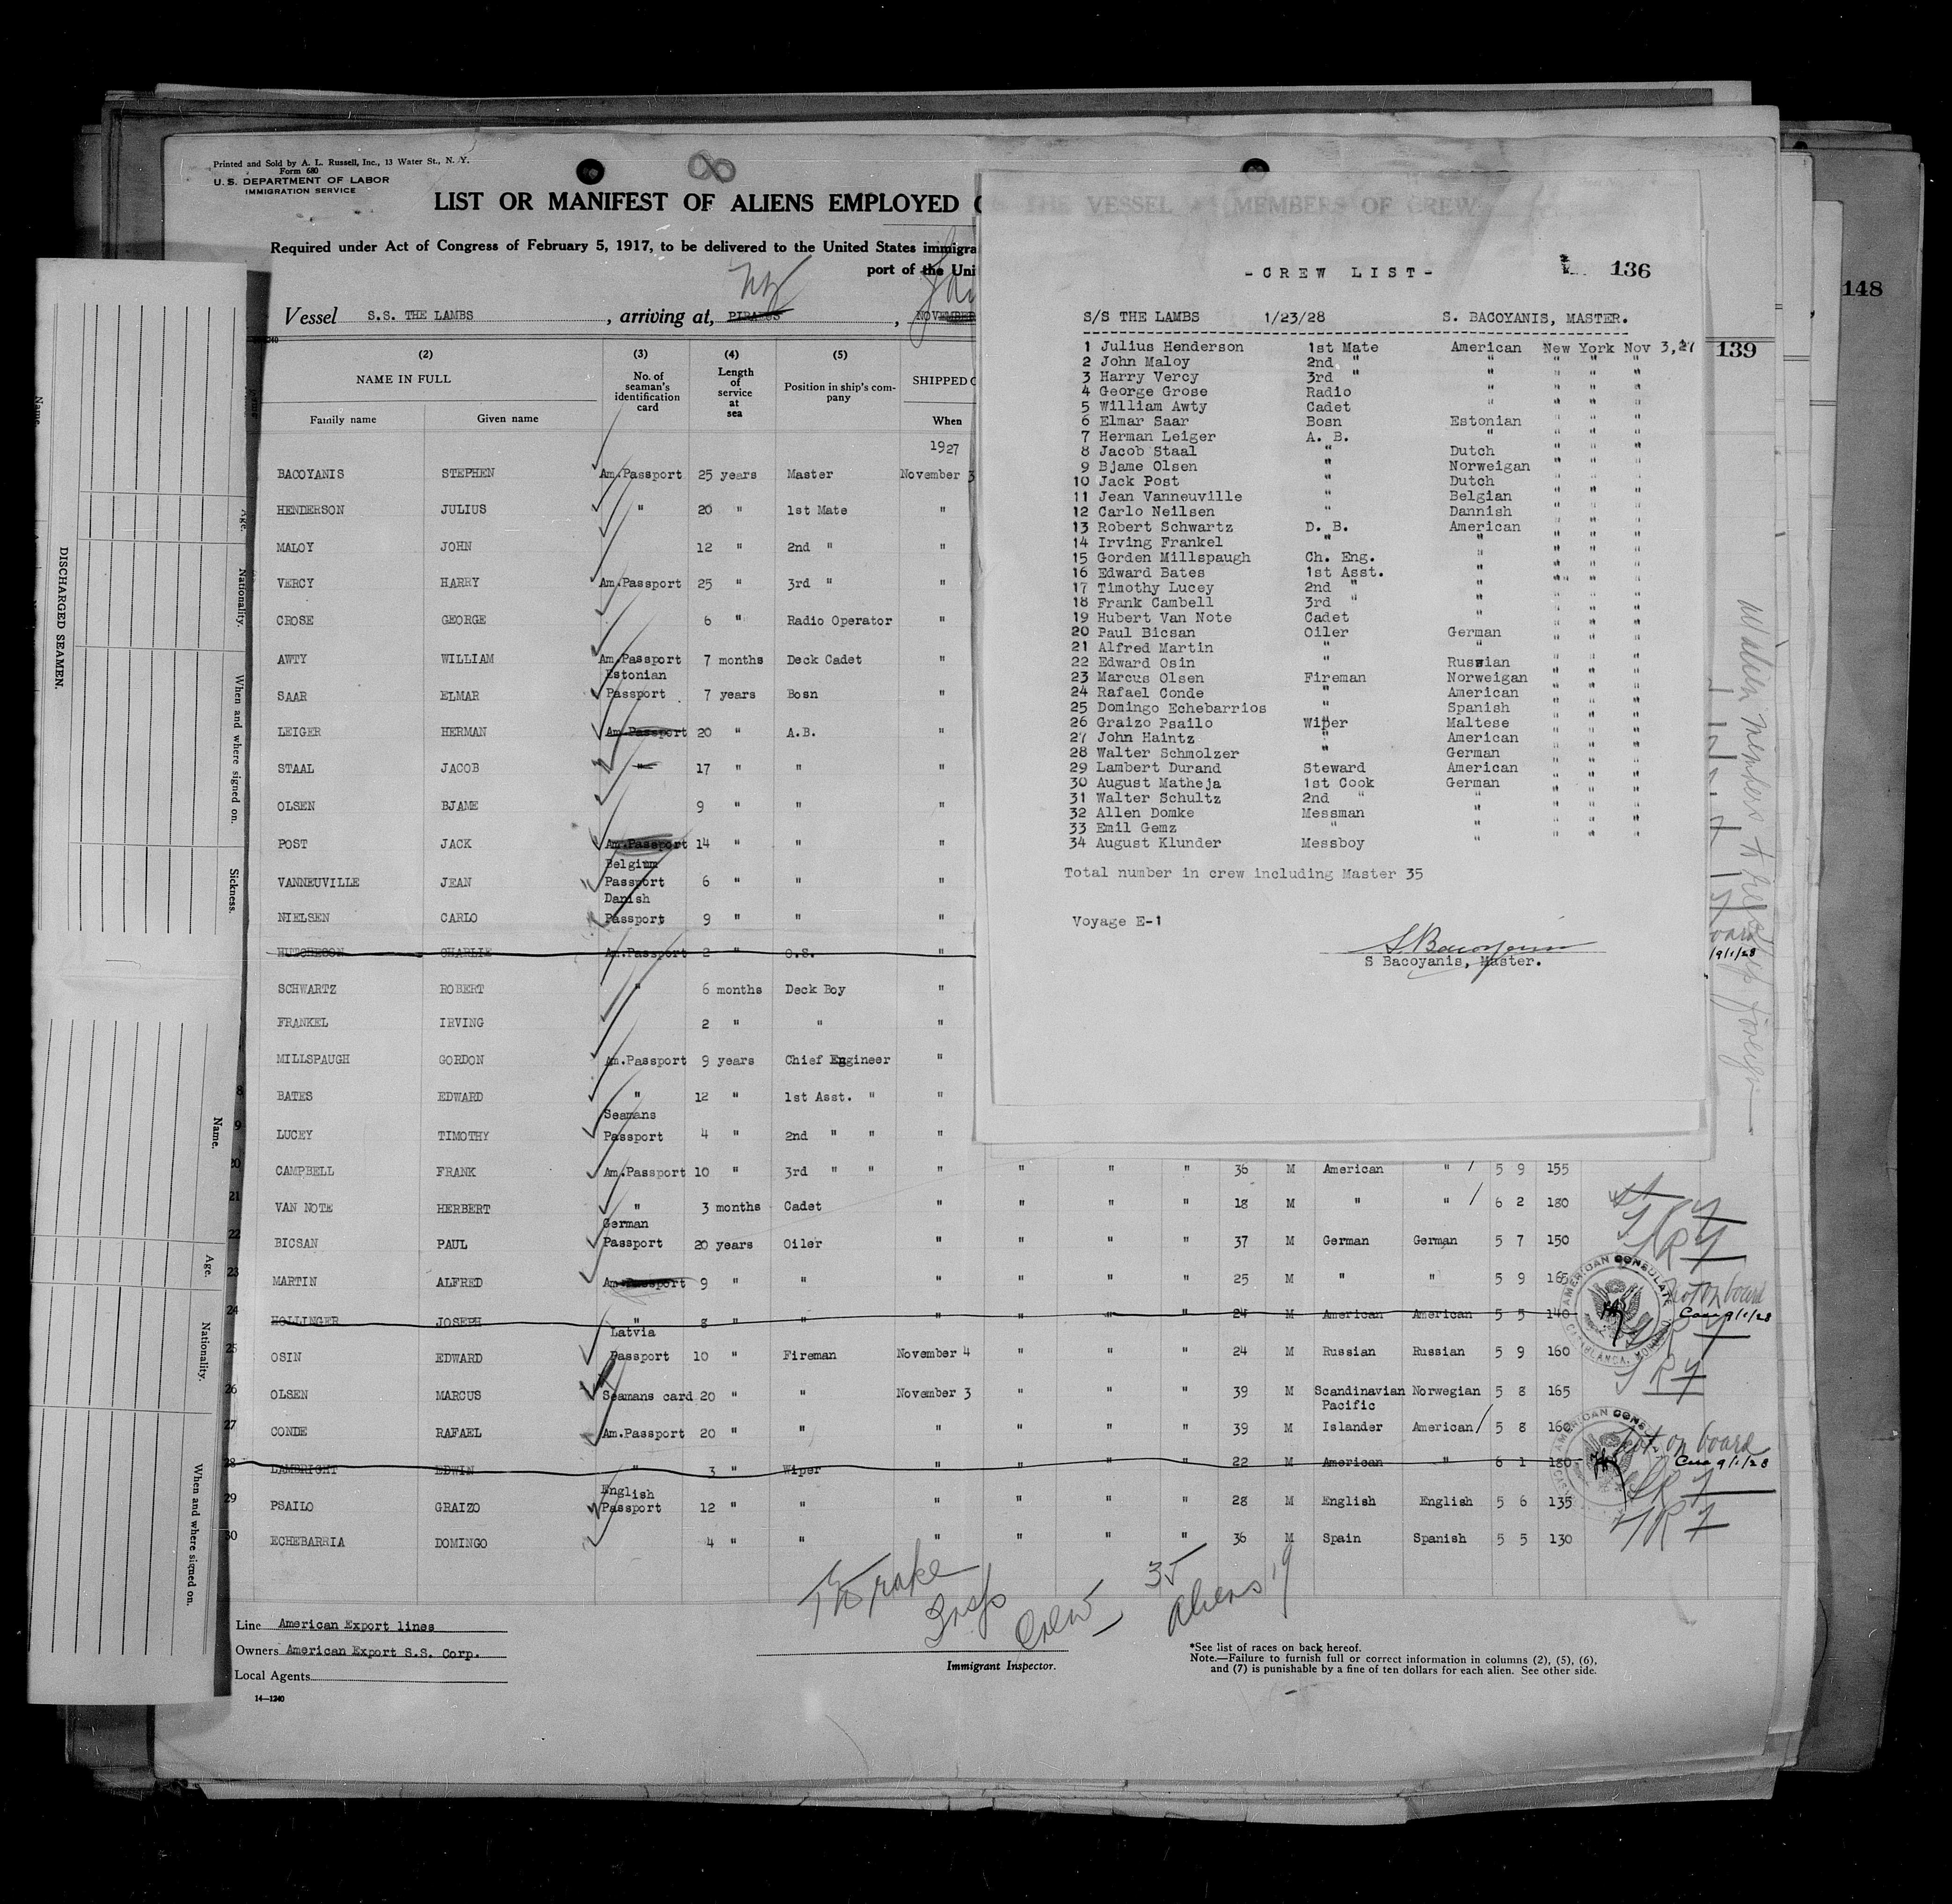 Printed and Sold by A. L. Russell, Inc., 13 Water St., N. Y.
Form 680
U. S. DEPARTMENT OF LABOR
IMMIGRATION SERVICE
LIST OR MANIFEST OF ALIENS EMPLOYED
THE VESSEL AS MEMBERS OF CREW
Required under Act of Congress of February 5, 1917, to be delivered to the United States immigra
port of the Uni
Vessel S.S. THE LAMBS , arriving at, PIRAEUS , NOVEMBER
NY
(2) (3) (4) (5)
NAME IN FULL
Family name Given name
No. of seaman's identification card
Length of service at sea
Position in ship's company
SHIPPED
When
1927
BACOYANIS STEPHEN Am.Passport 25 years Master November 3
HENDERSON JULIUS " 20 " 1st Mate "
MALOY JOHN 12 " 2nd " "
VERCY HARRY Am.Passport 25 " 3rd " "
CROSE GEORGE 6 " Radio Operator "
AWTY WILLIAM Am.Passport 7 months Deck Cadet "
SAAR ELMAR Estonian Passport 7 years Bosn "
LEIGER HERMAN Am.Passport 20 " A.B. "
STAAL JACOB " 17 " " "
OLSEN BJAME 9 " " "
POST JACK Am.Passport 14 " " "
VANNEUVILLE JEAN Belgium Passport 6 " " "
NIELSEN CARLO Danish Passport 9 " " "
HUTCHESON CHARLIE Am.Passport 2 " O.S. "
SCHWARTZ ROBERT " 6 months Deck Boy "
FRANKEL IRVING 2 " " "
MILLSPAUGH GORDON Am.Passport 9 years Chief Engineer "
8 BATES EDWARD " 12 " 1st Asst. " "
9 LUCEY TIMOTHY Seamans Passport 4 " 2nd " " "
20 CAMPBELL FRANK Am.Passport 10 " 3rd " " " " " " 36 M American " 5 9 155
21 VAN NOTE HERBERT " 3 months Cadet " " " " 18 M " " 6 2 180
22 BICSAN PAUL German Passport 20 years Oiler " " " " 37 M German German 5 7 150
23 MARTIN ALFRED Am.Passport 9 " " " " " " 25 M " " 5 9 165
24 HOLLINGER JOSEPH " 8 " " " " " " 24 M American American 5 5 140 Not on board 9/1/28
25 OSIN EDWARD Latvia Passport 10 " Fireman November 4 " " " 24 M Russian Russian 5 9 160
26 OLSEN MARCUS Seamans card 20 " " November 3 " " " 39 M Scandinavian Norwegian 5 8 165
27 CONDE RAFAEL Am.Passport 20 " " " " " " 39 M Pacific Islander American 5 8 160
28 LAMBRIGHT EDWIN " 3 " Wiper " " " " 22 M American " 6 1 180 Not on board 9/1/28
29 PSAILO GRAIZO English Passport 12 " " " " " " 28 M English English 5 6 135
30 ECHEBARRIA DOMINGO 4 " " " " " " 36 M Spain Spanish 5 5 130
AMERICAN CONSULATE
CASABLANCA, MOROCCO
Insp
Crew 35
Aliens 19
Line American Export lines
Owners American Export S.S. Corp.
Local Agents
14—1240
Immigrant Inspector.
*See list of races on back hereof.
Note.—Failure to furnish full or correct information in columns (2), (5), (6),
and (7) is punishable by a fine of ten dollars for each alien. See other side.
-CREW LIST- 136
S/S THE LAMBS 1/23/28 S. BACOYANIS, MASTER.
1 Julius Henderson 1st Mate American New York Nov 3,27
2 John Maloy 2nd " " " " "
3 Harry Vercy 3rd " " " " "
4 George Grose Radio " " " "
5 William Awty Cadet " " " "
6 Elmar Saar Bosn Estonian " " "
7 Herman Leiger A. B. " " " "
8 Jacob Staal " Dutch " " "
9 Bjame Olsen " Norweigan " " "
10 Jack Post " Dutch " " "
11 Jean Vanneuville " Belgian " " "
12 Carlo Neilsen " Dannish " " "
13 Robert Schwartz D. B. American " " "
14 Irving Frankel " " " " "
15 Gorden Millspaugh Ch. Eng. " " " "
16 Edward Bates 1st Asst. " " " "
17 Timothy Lucey 2nd " " " " "
18 Frank Cambell 3rd " " " " "
19 Hubert Van Note Cadet " " " "
20 Paul Bicsan Oiler German " " "
21 Alfred Martin " " " " "
22 Edward Osin " Russian " " "
23 Marcus Olsen Fireman Norweigan " " "
24 Rafael Conde " American " " "
25 Domingo Echebarrios " Spanish " " "
26 Graizo Psailo Wiper Maltese " " "
27 John Haintz " American " " "
28 Walter Schmolzer " German " " "
29 Lambert Durand Steward American " " "
30 August Matheja 1st Cook German " " "
31 Walter Schultz 2nd " " " " "
32 Allen Domke Messman " " " "
33 Emil Gemz " " " " "
34 August Klunder Messboy "
Total number in crew including Master 35
Voyage E-1
S. Bacoyanis
S Bacoyanis, Master.
139
148
9/1/28
DISCHARGED SEAMEN.
Name.
Age.
Nationality.
When and where signed on.
Sickness.
Name.
Age.
Nationality.
When and where signed on.